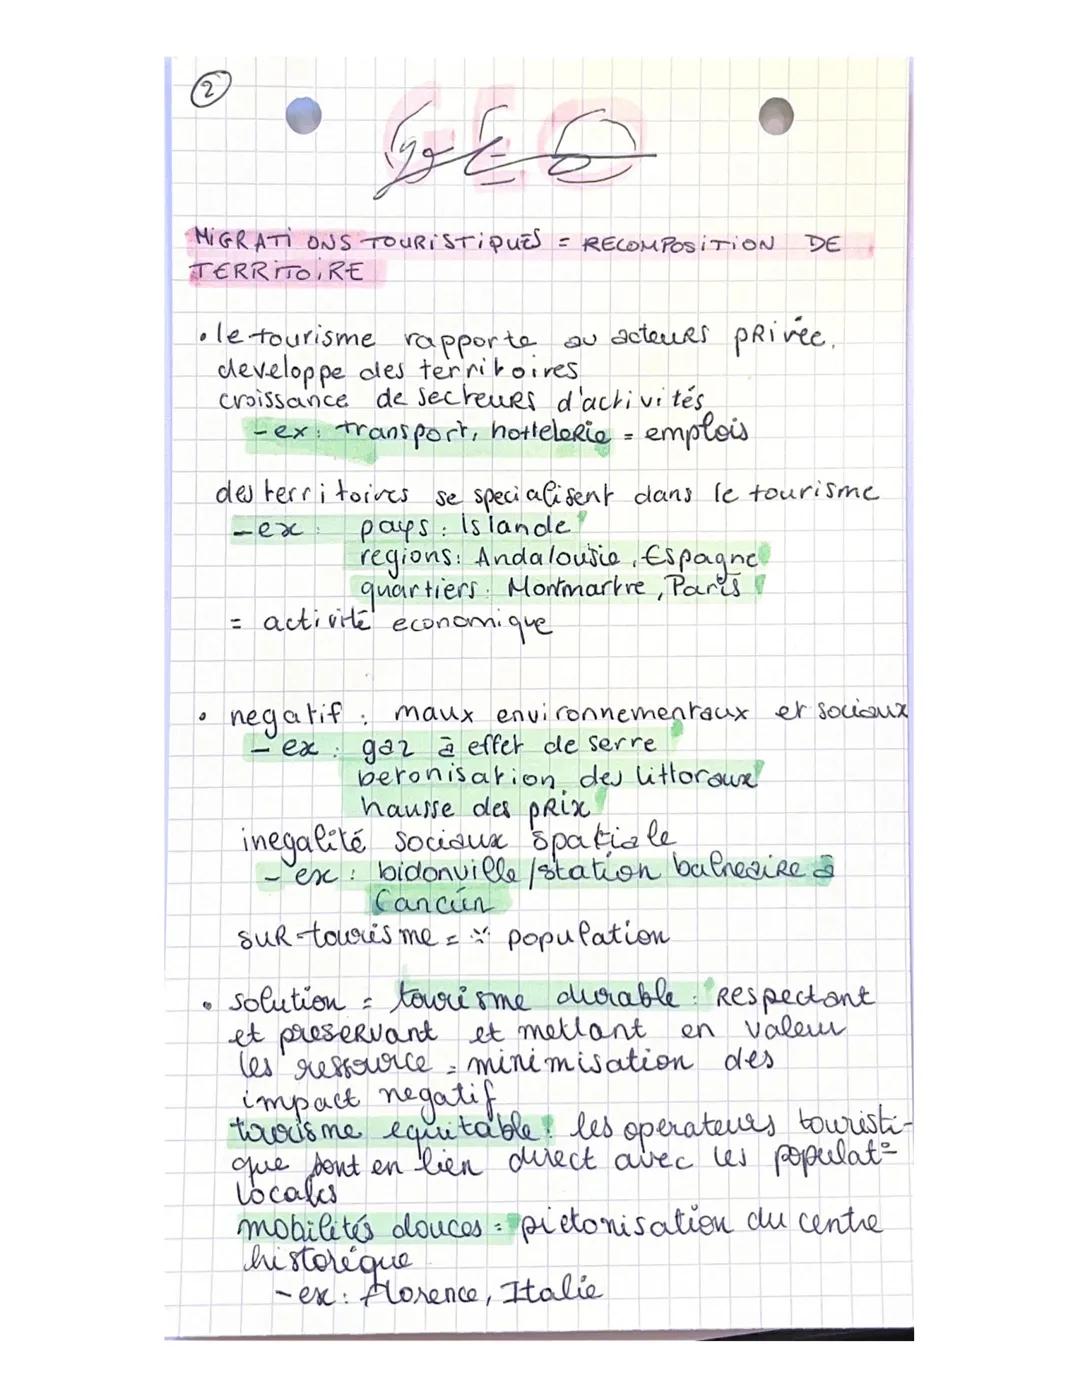 2
GEO
MIGRATIONS TOURISTIQUES = RECOMPOSITION DE
TERRITOIRE
• le tourisme rapporte au acteurs privée.
developpe des territoires
croissance de secteurs d'activités
- ex : transport, hottelerie = emplois
des territoires se specialisent dans le tourisme
- ex : pays : Islande
regions : Andalousie, Espagne
quartiers : Montmartre, Paris
= activité economique
• negatif : maux environnementaux et sociaux
- ex : gaz à effet de serre
betonisation des littoraux
hausse des prix
inegalité sociaux spatiale
- ex : bidonville / station balneaire à
Cancún
sur-tourisme = population
• solution = tourisme durable : respectant
et preservant et mettant en valeur
les ressource = minimisation des
impact negatif
tourisme equitable : les operateurs touristi-
que sont en lien direct avec les populat°
locales
mobilités douces = pietonisation du centre
historique
- ex : Florence, Italie